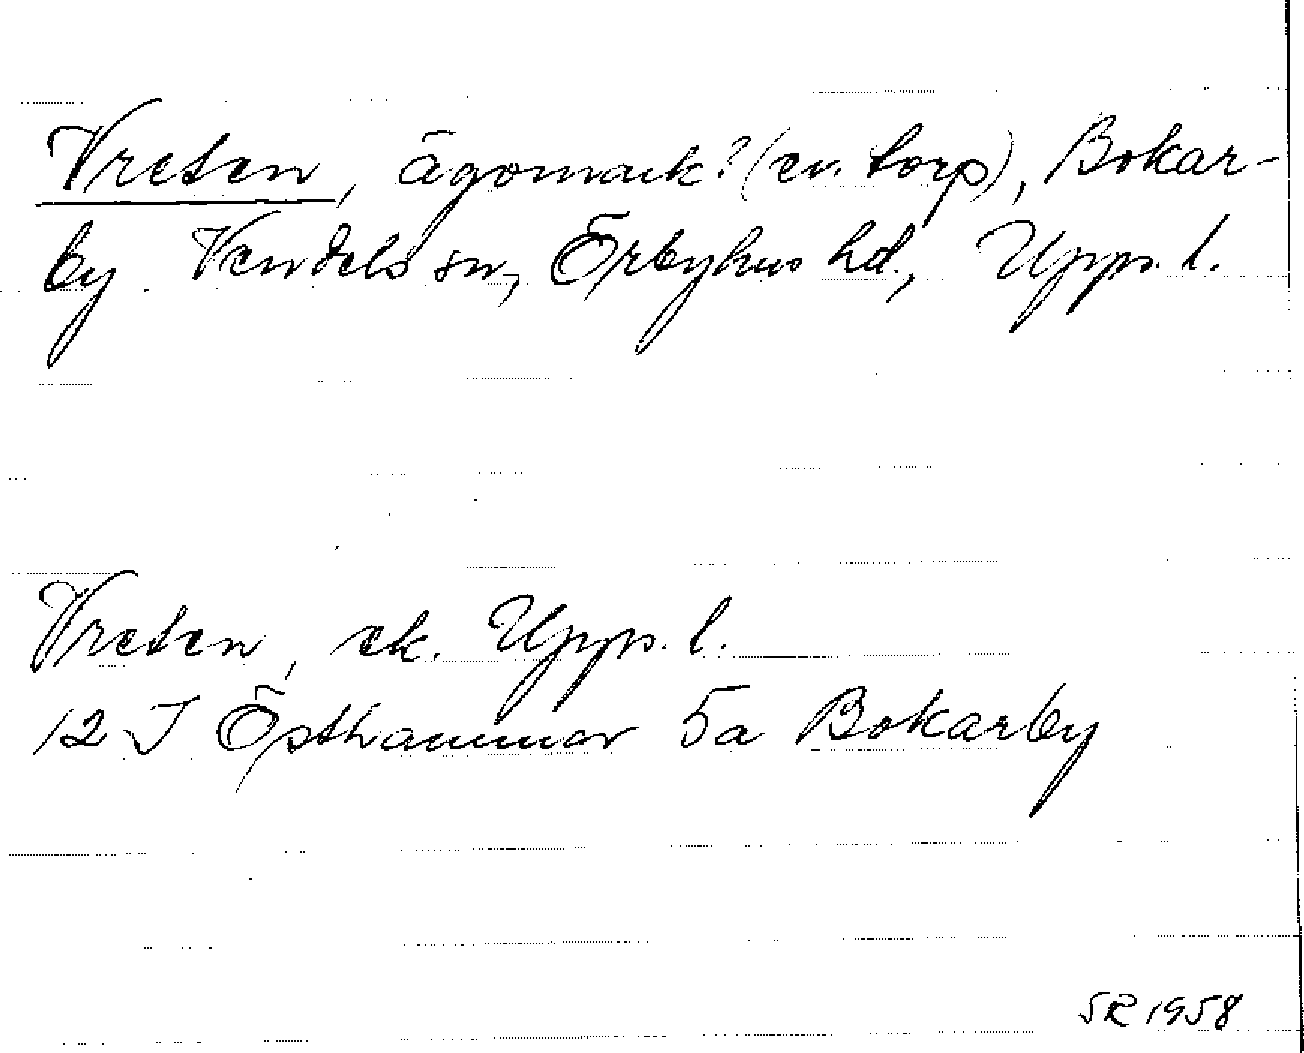 Vreten, ägomark? (ev. torp), Bokar-
by Vendels sn, Örbyhus hd., Upps. l.
Vreten, ek. Upps. l.
12 I Östhammar 5a Bokarby
SR 1958